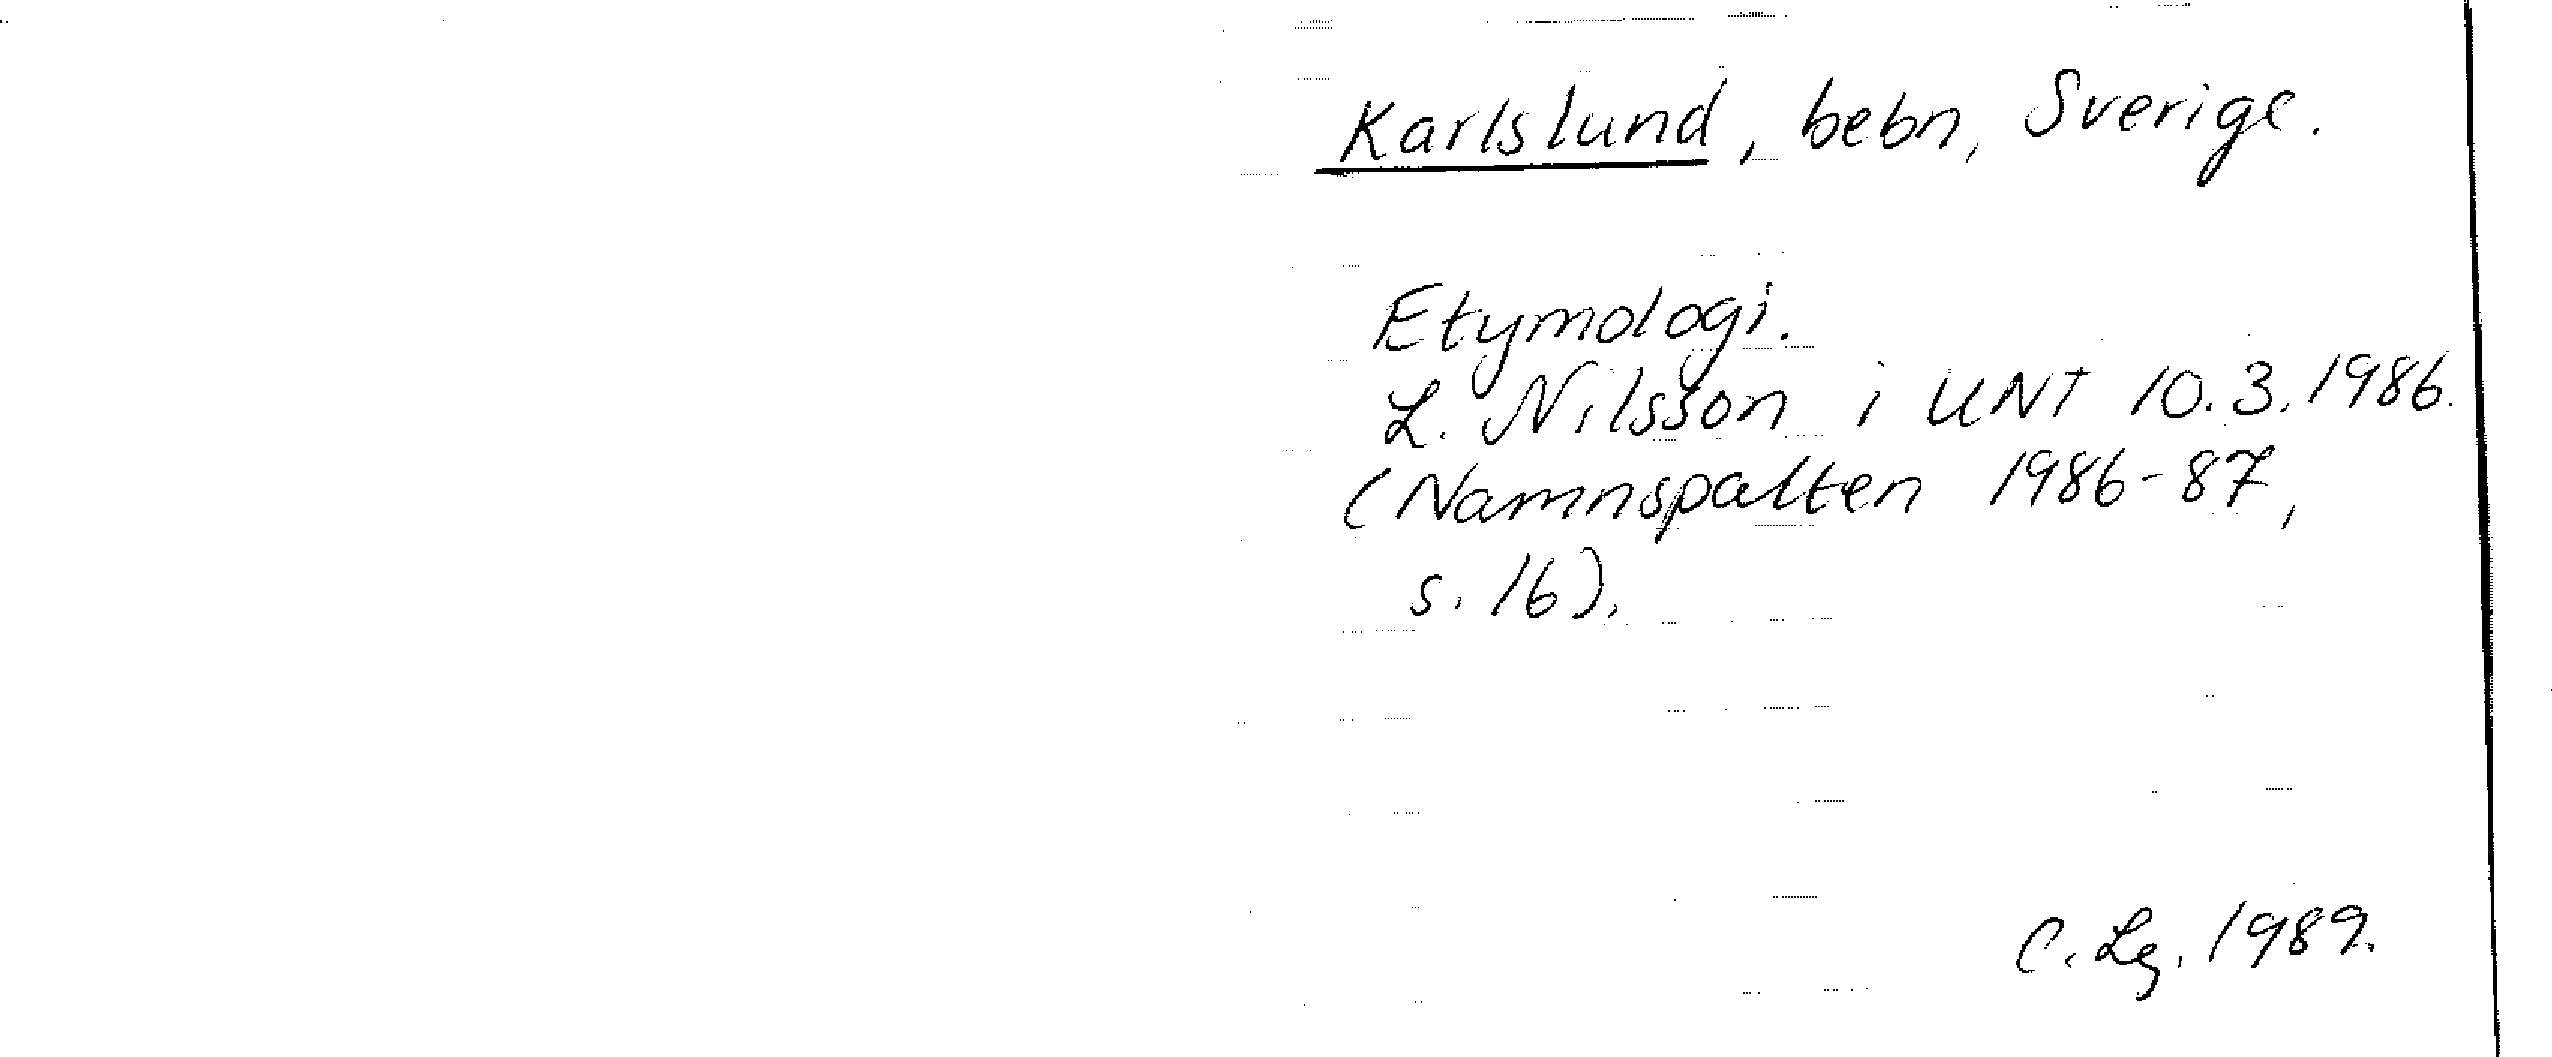 Karlslund, bebn, Sverige.
Etymologi.
L. Nilsson i UNT 10.3.1986.
(Namnspalten 1986-87,
s. 16).
C. Lg. 1989.